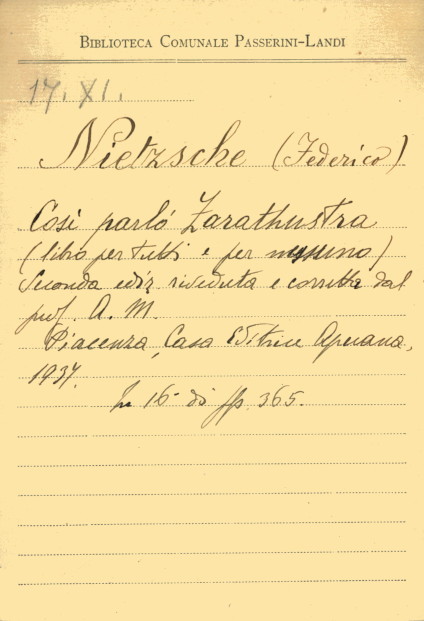 BIBLIOTECA COMUNALE PASSERINI-LANDI
17. XI.
Nietzsche (Federico)
Così parlò Zarathustra
(libro per tutti e per nessuno)
Seconda ediz. riveduta e corretta dal
prof. A. M.
Piacenza, Casa Editrice Apuana,
1937.
In 16° di pp. 365.